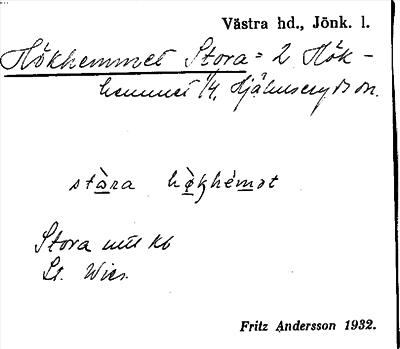 Västra hd., Jönk. l.
Hökhemmet Stora = 2 Hök-
hemmet 1/4, Hjälmseryds sn.
stàra hø̀khémǝt
Stora mil kb
St. Wies.
Fritz Andersson 1932.